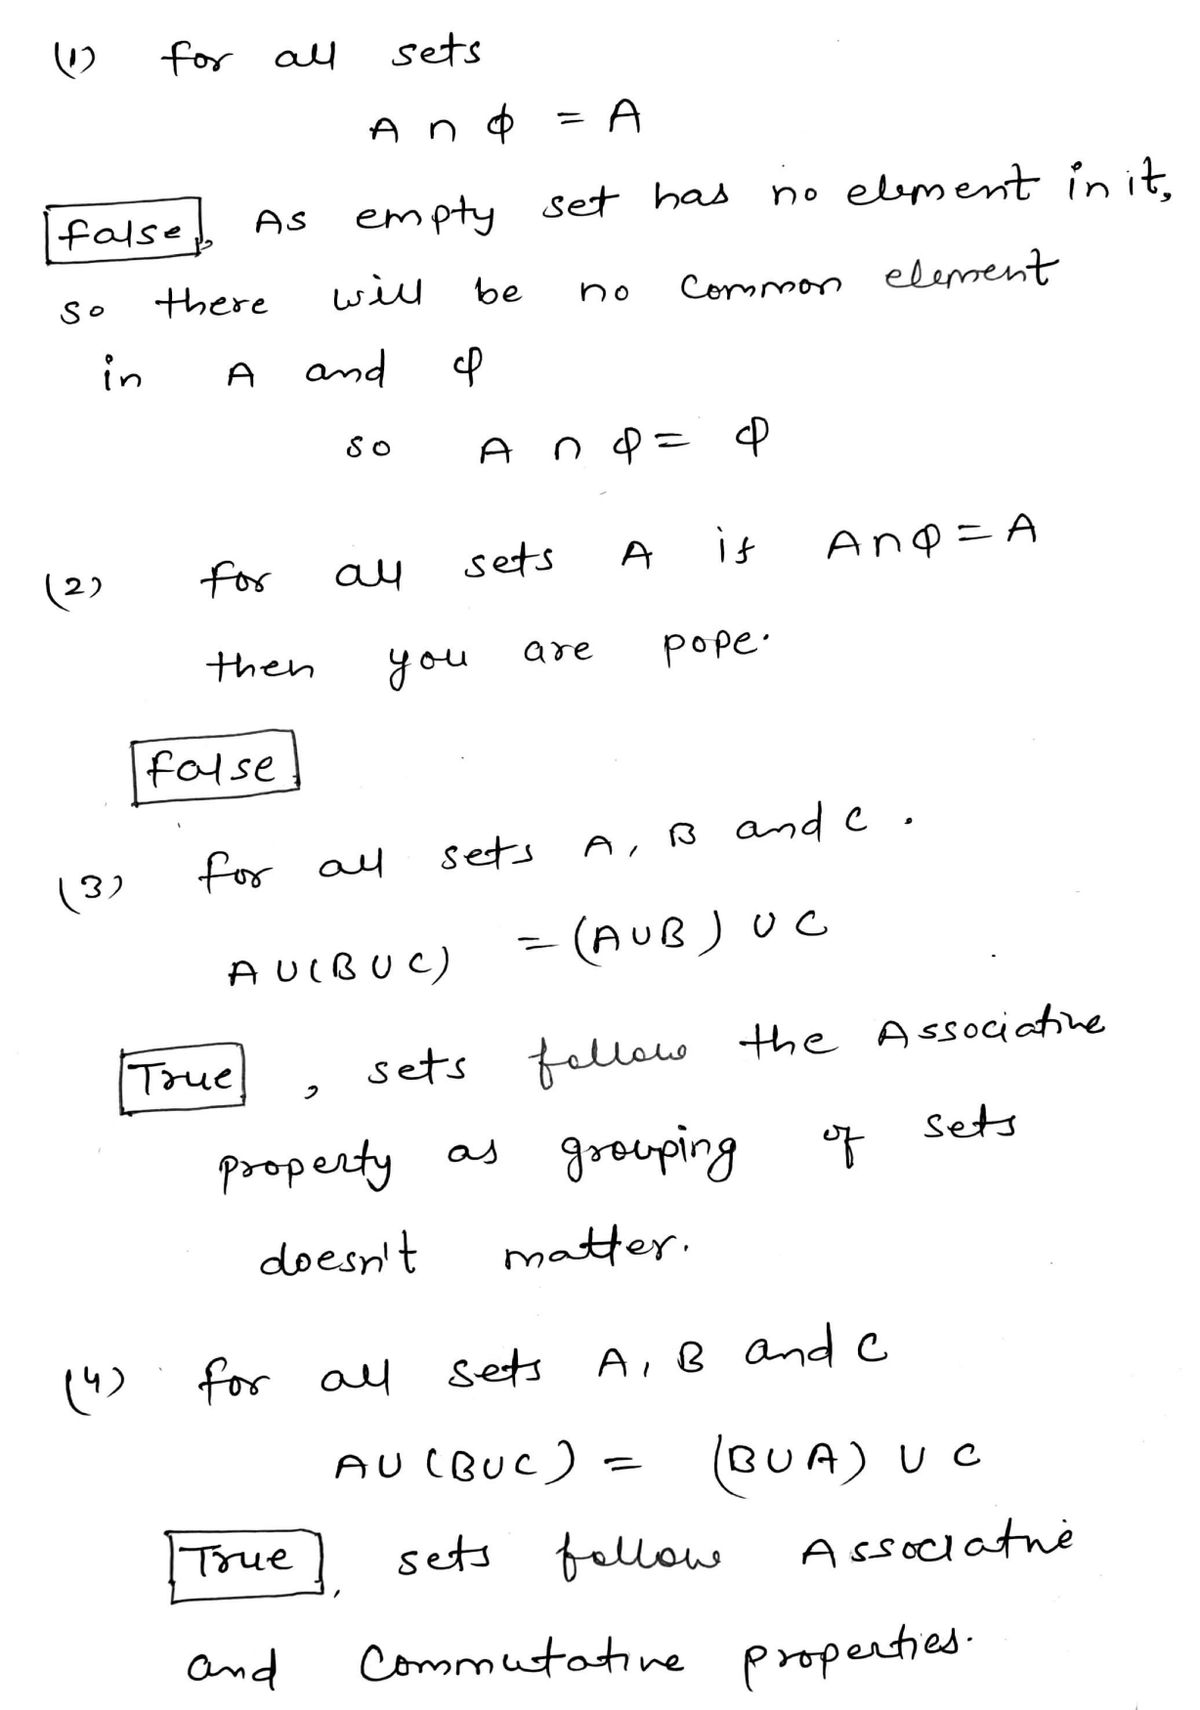 (1) for all sets
A ∩ ϕ = A
False, As empty set has no element in it,
so there will be no common element
in A and ϕ
so A ∩ ϕ = ϕ
(2) for all sets A if A∩ϕ = A
then you are pope.
False
(3) for all sets A, B and C .
A U (B U C) = (A U B) U C
True , sets follow the Associative
property as grouping of sets
doesn't matter.
(4) for all sets A, B and C
A U (B U C) = (B U A) U C
True , sets follow Associative
and Commutative properties.